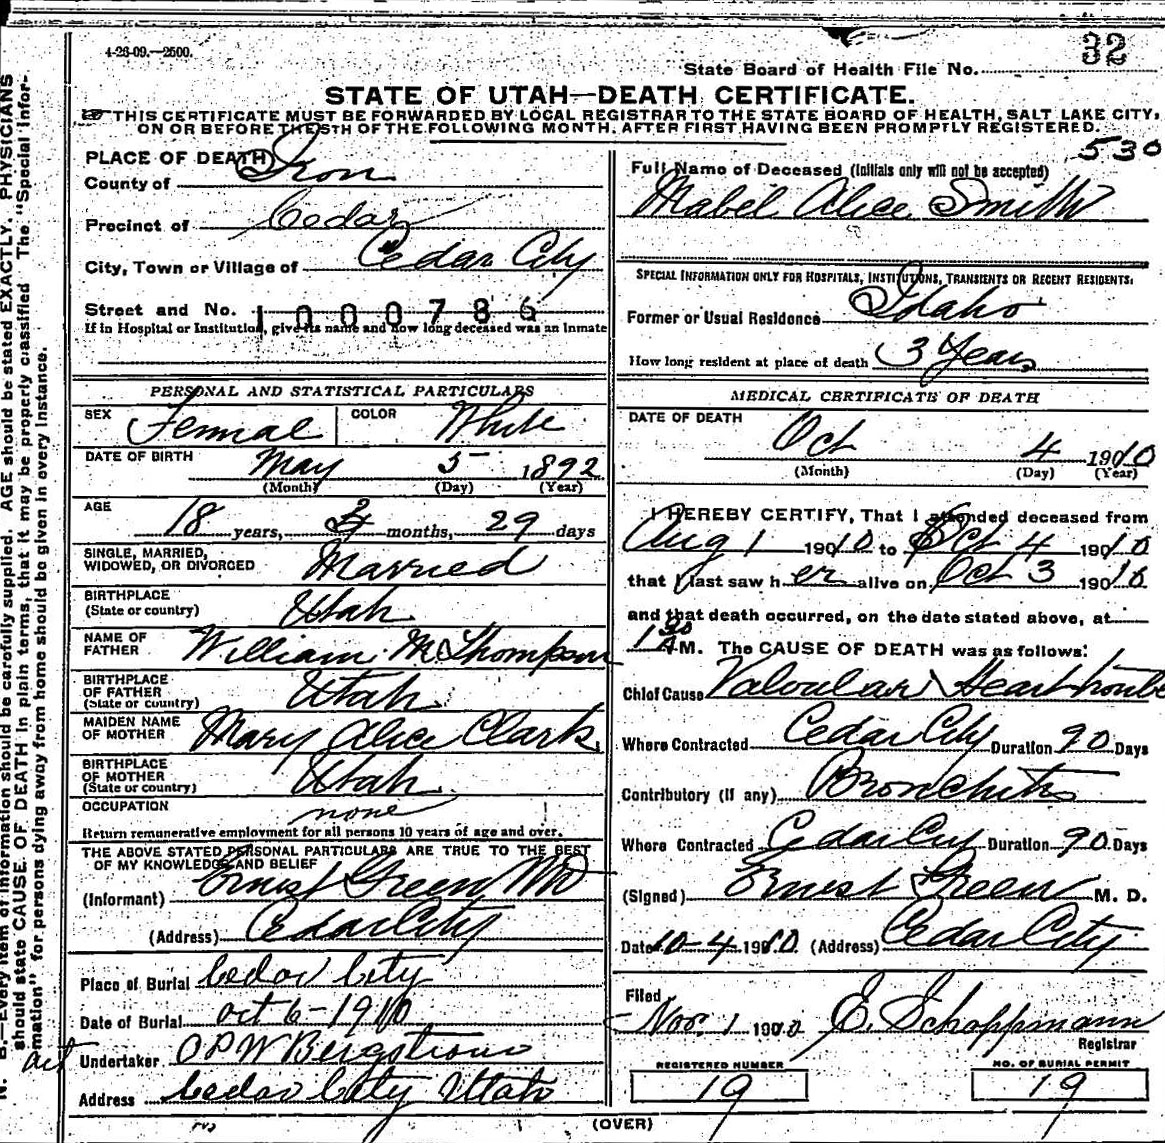 4-26-09.—2500.
32
State Board of Health File No.
STATE OF UTAH—DEATH CERTIFICATE.
THIS CERTIFICATE MUST BE FORWARDED BY LOCAL REGISTRAR TO THE STATE BOARD OF HEALTH, SALT LAKE CITY,
ON OR BEFORE THE 5TH OF THE FOLLOWING MONTH, AFTER FIRST HAVING BEEN PROMPTLY REGISTERED.
530
PLACE OF DEATH
County of Iron
Precinct of Cedar
City, Town or Village of Cedar City
Street and No. 1000786
If in Hospital or Institution, give its name and how long deceased was an Inmate
Full Name of Deceased (Initials only will not be accepted)
Mabel Alice Smith
SPECIAL INFORMATION ONLY FOR HOSPITALS, INSTITUTIONS, TRANSIENTS OR RECENT RESIDENTS:
Former or Usual Residence Idaho
How long resident at place of death 3 Years
PERSONAL AND STATISTICAL PARTICULARS
SEX Femnal COLOR White
DATE OF BIRTH May 5 1892
(Month) (Day) (Year)
AGE 18 years, months, 29 days
SINGLE, MARRIED,
WIDOWED, OR DIVORCED Married
BIRTHPLACE
(State or country) Utah
NAME OF
FATHER William M Thompson
BIRTHPLACE
OF FATHER
(State or country) Utah
MAIDEN NAME
OF MOTHER Mary Alice Clark
BIRTHPLACE
OF MOTHER
(State or country) Utah
OCCUPATION none
Return remunerative employment for all persons 10 years of age and over.
THE ABOVE STATED PERSONAL PARTICULARS ARE TRUE TO THE BEST
OF MY KNOWLEDGE AND BELIEF
(Informant) Ernest Green MD
(Address) Cedar City
Place of Burial Cedar City
Date of Burial Oct 6-1910
Undertaker O P W Bergstrom
Address Cedar City Uttah
MEDICAL CERTIFICATE OF DEATH
DATE OF DEATH
Oct 4 1910
(Month) (Day) (Year)
I HEREBY CERTIFY, That I attended deceased from
Aug 1 1910 to Oct 4 1910
that I last saw her alive on Oct 3 1910
and that death occurred, on the date stated above, at
1 30 A M. The CAUSE OF DEATH was as follows:
Chief Cause Valvular Heart trouble
Where Contracted Cedar City Duration 90 Days
Contributory (If any) Bronchitis
Where Contracted Cedar City Duration 90 Days
(Signed) Ernest Green M. D.
Date 10-4-1910 (Address) Cedar City
Filed
Nov. 1 1910 E. Schoppmann
Registrar
REGISTERED NUMBER
19
NO. OF BURIAL PERMIT
19
(OVER)
N. B.—Every item of information should be carefully supplied. AGE should be stated EXACTLY. PHYSICIANS
should state CAUSE OF DEATH in plain terms, that it may be properly classified The "Special Infor-
mation" for persons dying away from home should be given in every instance.